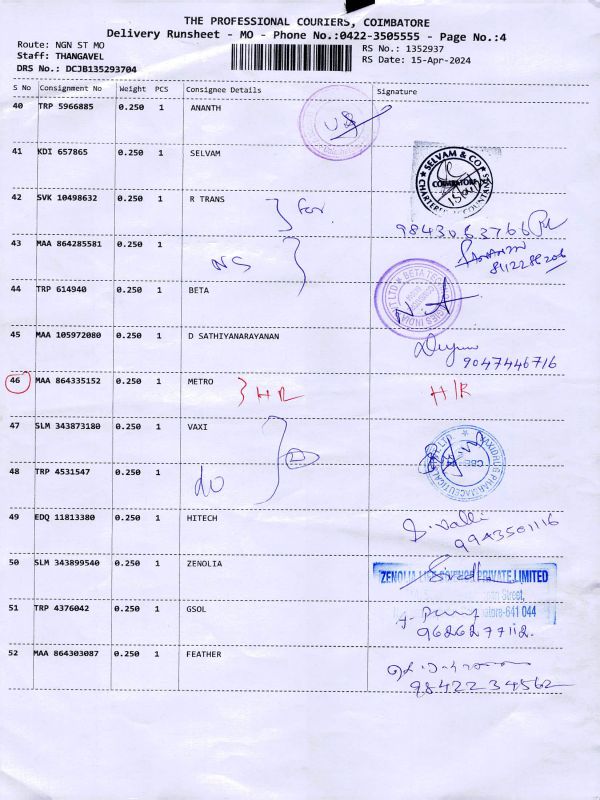 THE PROFESSIONAL COURIERS, COIMBATORE
Delivery Runsheet - MO - Phone No.:0422-3505555 - Page No.:4
Route: NGN ST MO
RS No.: 1352937
Staff: THANGAVEL
RS Date: 15-Apr-2024
DRS No.: DCJB135293704
S No Consignment No Weight PCS Consignee Details Signature
40 TRP 5966885 0.250 1 ANANTH
41 KDI 657865 0.250 1 SELVAM
SELVAM & CO
COIMBATORE
CHARTERED ACCOUNTANTS
42 SVK 10498632 0.250 1 R TRANS
for
43 MAA 864285581 0.250 1
NS
44 TRP 614940 0.250 1 BETA
45 MAA 105972080 0.250 1 D SATHIYANARAYANAN
9047446716
46 MAA 864335152 0.250 1 METRO HR H/R
47 SLM 343873180 0.250 1 VAXI
48 TRP 4531547 0.250 1 do
49 EDQ 11813380 0.250 1 HITECH
S. Valli
9943501116
50 SLM 343899540 0.250 1 ZENOLIA
PRIVATE LIMITED
51 TRP 4376042 0.250 1 GSOL
641 044
9626277112.
52 MAA 864303087 0.250 1 FEATHER
9842234562